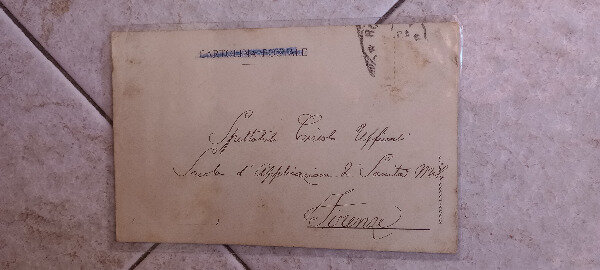 CARTOLINA POSTALE
Spettabile Circolo Ufficiali
Scuola d'Applicazione di Sanità Milit.
Firenze